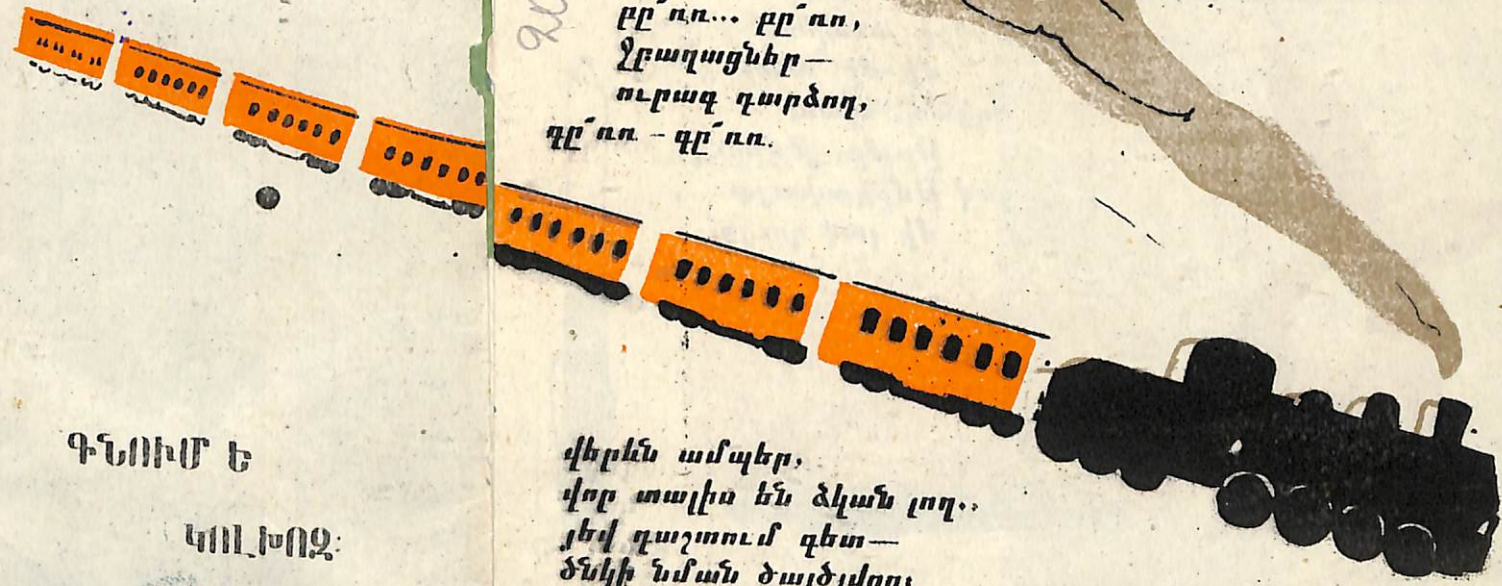 բը՜ռռ... բը՜ռռ,
Ջրաղացներ—
ուրագ դարձող,
գը՜ռռ - գը՜ռռ.
ԳՆՈՒՄ Ե
ԿՈԼԽՈԶ:
վերևն ամպեր,
վոր տալիս են ձկան լող..
յեվ դաշտում գետ—
ծնկի նման ծալծլվող: